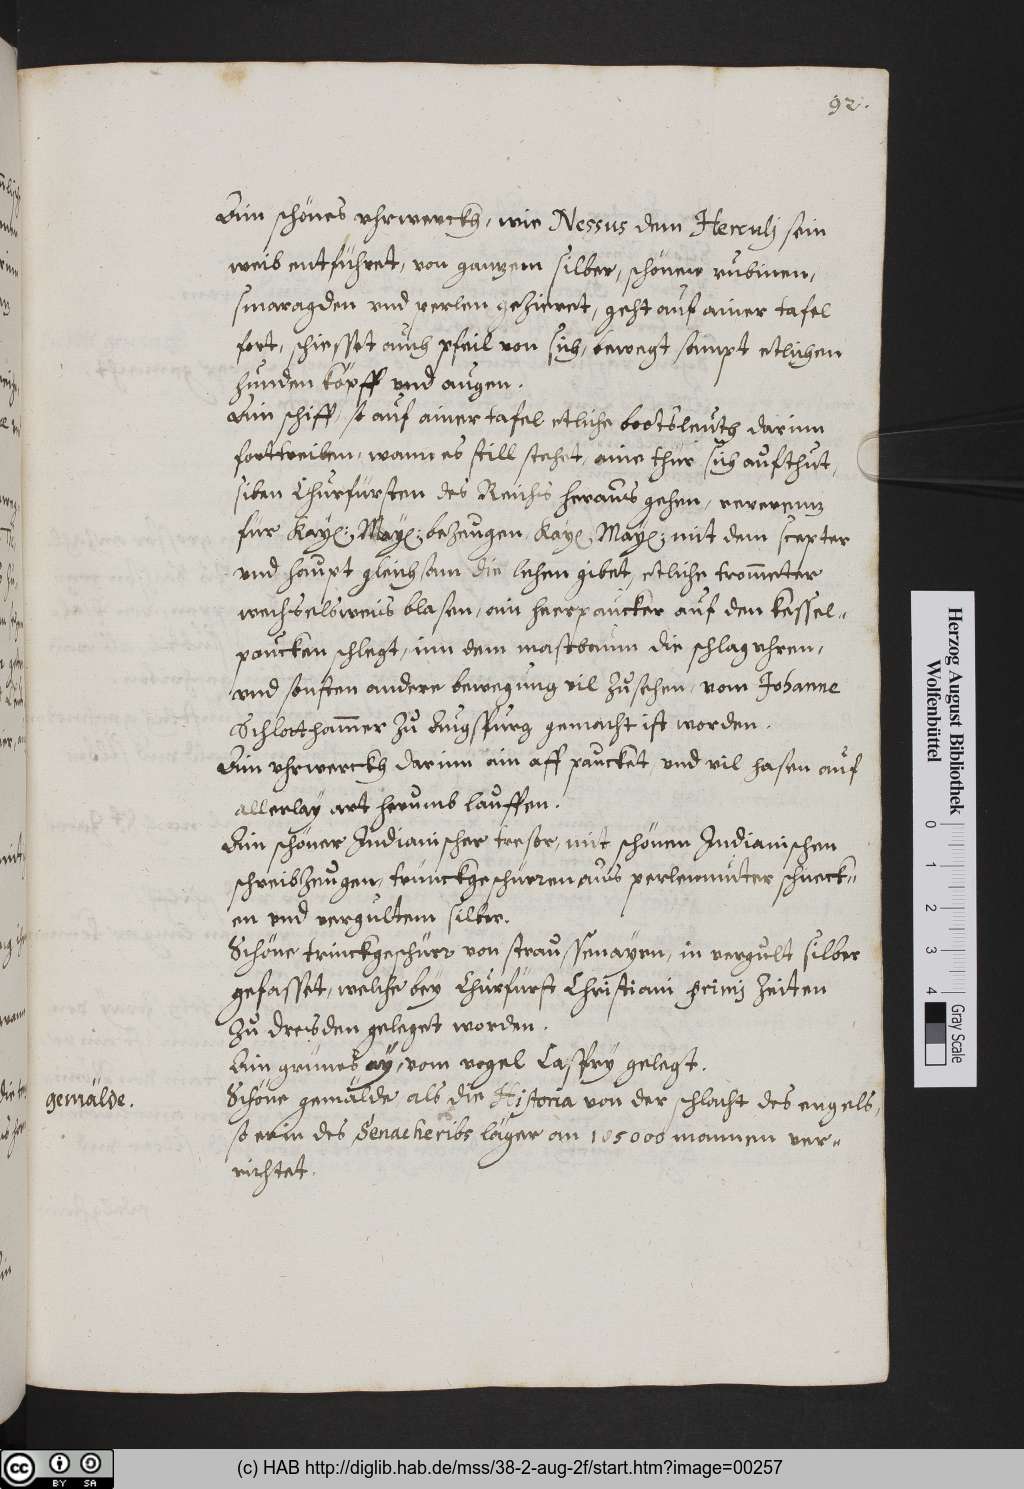 92.
Ain schönes vhrwerckh, wie Nessus dem Herculj sein
weib entführet, von gantzem silber, schönen rubinen,
smaragden vnd perlen gezieret, geht auf ainer tafel
fort, schiesset auch pfeil von sich, bewegt sampt etlichen
hunden köpff vnd augen.
Ain schiff, so auf ainer tafel etliche bootsleuth darinn
forttreiben, wann es still stehet, aine thür sich aufthut,
siben Churfürsten des Reichs heraus gehen, reverentz
für Kay: May: bezeugen, Kay: May: mit dem scepter
vnd haupt gleichsam die lehen gibet, etliche trommeter
wechselsweis blasen, ain heerpaucker auf den kessel-
paucken schlegt, inn dem mastbaum die schlaguhren,
vnd sonsten andere bewegung vil zusehen, vom Johanne
Schlotthammer zu Augspurg gemacht ist worden.
Ain vhrwerckh darinn ain aff paucket, vnd vil hasen auf
allerlay art herumb lauffen.
Ain schöner Indianischer tresor, mit schönen Indianischen
schreibzeugen, trinckgeschirren aus perlenmuter schneck-
en vnd vergultem silber.
Schöne trinckgeschirr von straussenayrn, in vergult silber
gefasset, welche bey Churfürst Christiani primi Zeiten
zu dresden geleget worden.
Ain grünes ay, vom vogel Casary gelegt.
gemälde.
Schöne gemälde als die Historia von der schlacht des engels,
so er in des Senacheribs läger an 185000 mannen ver-
richtet.
Herzog August Bibliothek
Wolfenbüttel
0 1 2 3 4
Gray Scale
(c) HAB http://diglib.hab.de/mss/38-2-aug-2f/start.htm?image=00257
cc BY SA